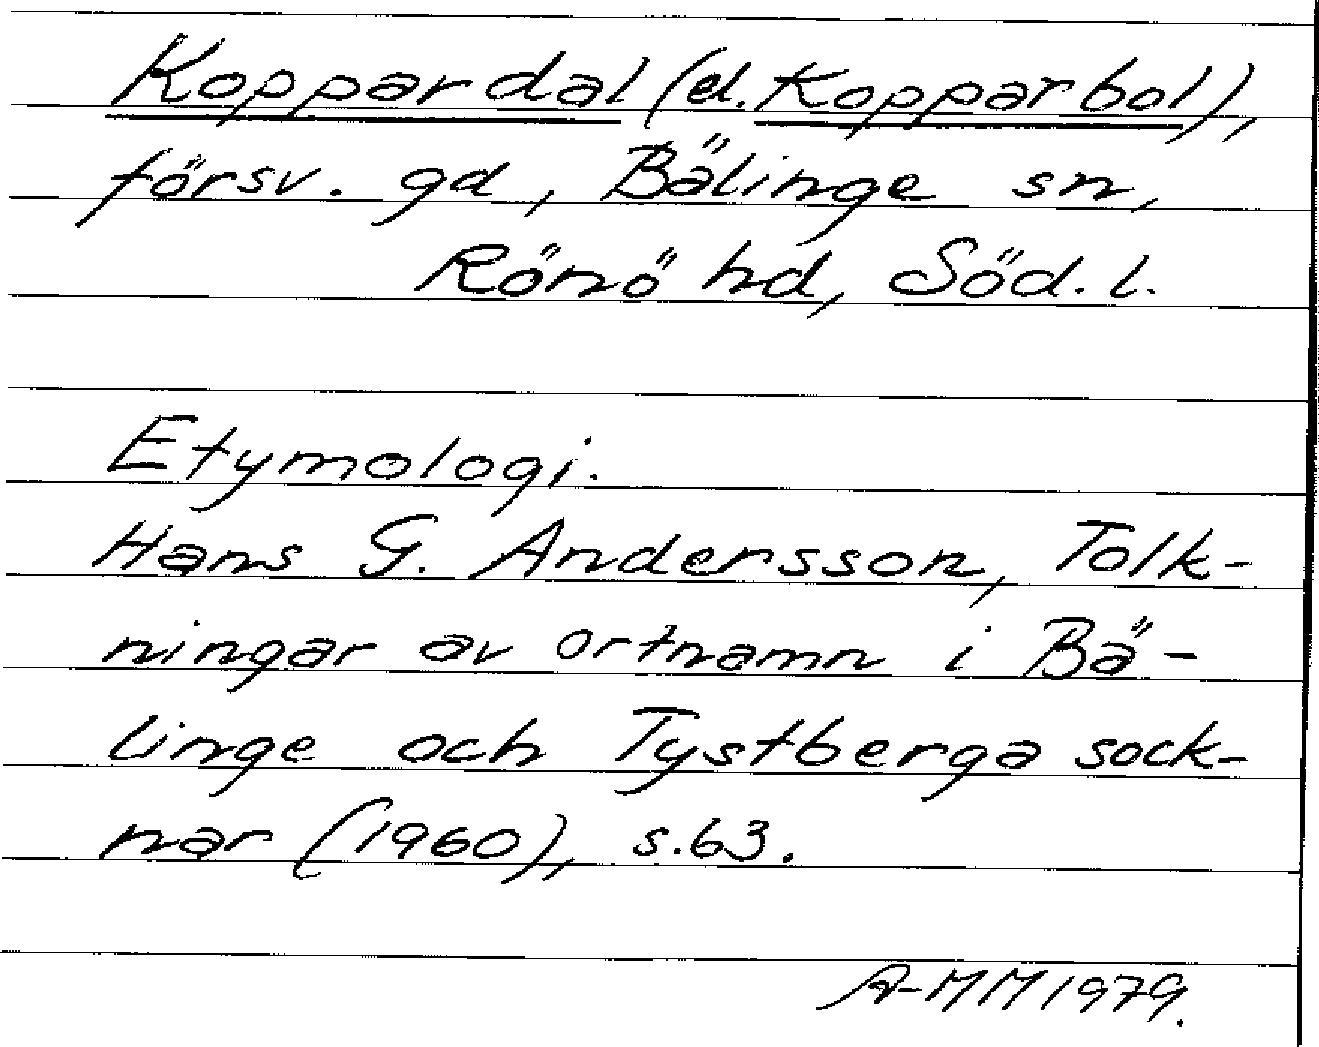 Koppardal (el. Kopparbol),
försv. gd, Bälinge sn,
Rönö hd, Söd. l.
Etymologi.
Hans G. Andersson, Tolk-
ningar av ortnamn i Bä-
linge och Tystberga sock-
nar (1960), s. 63.
A-MM 1979.